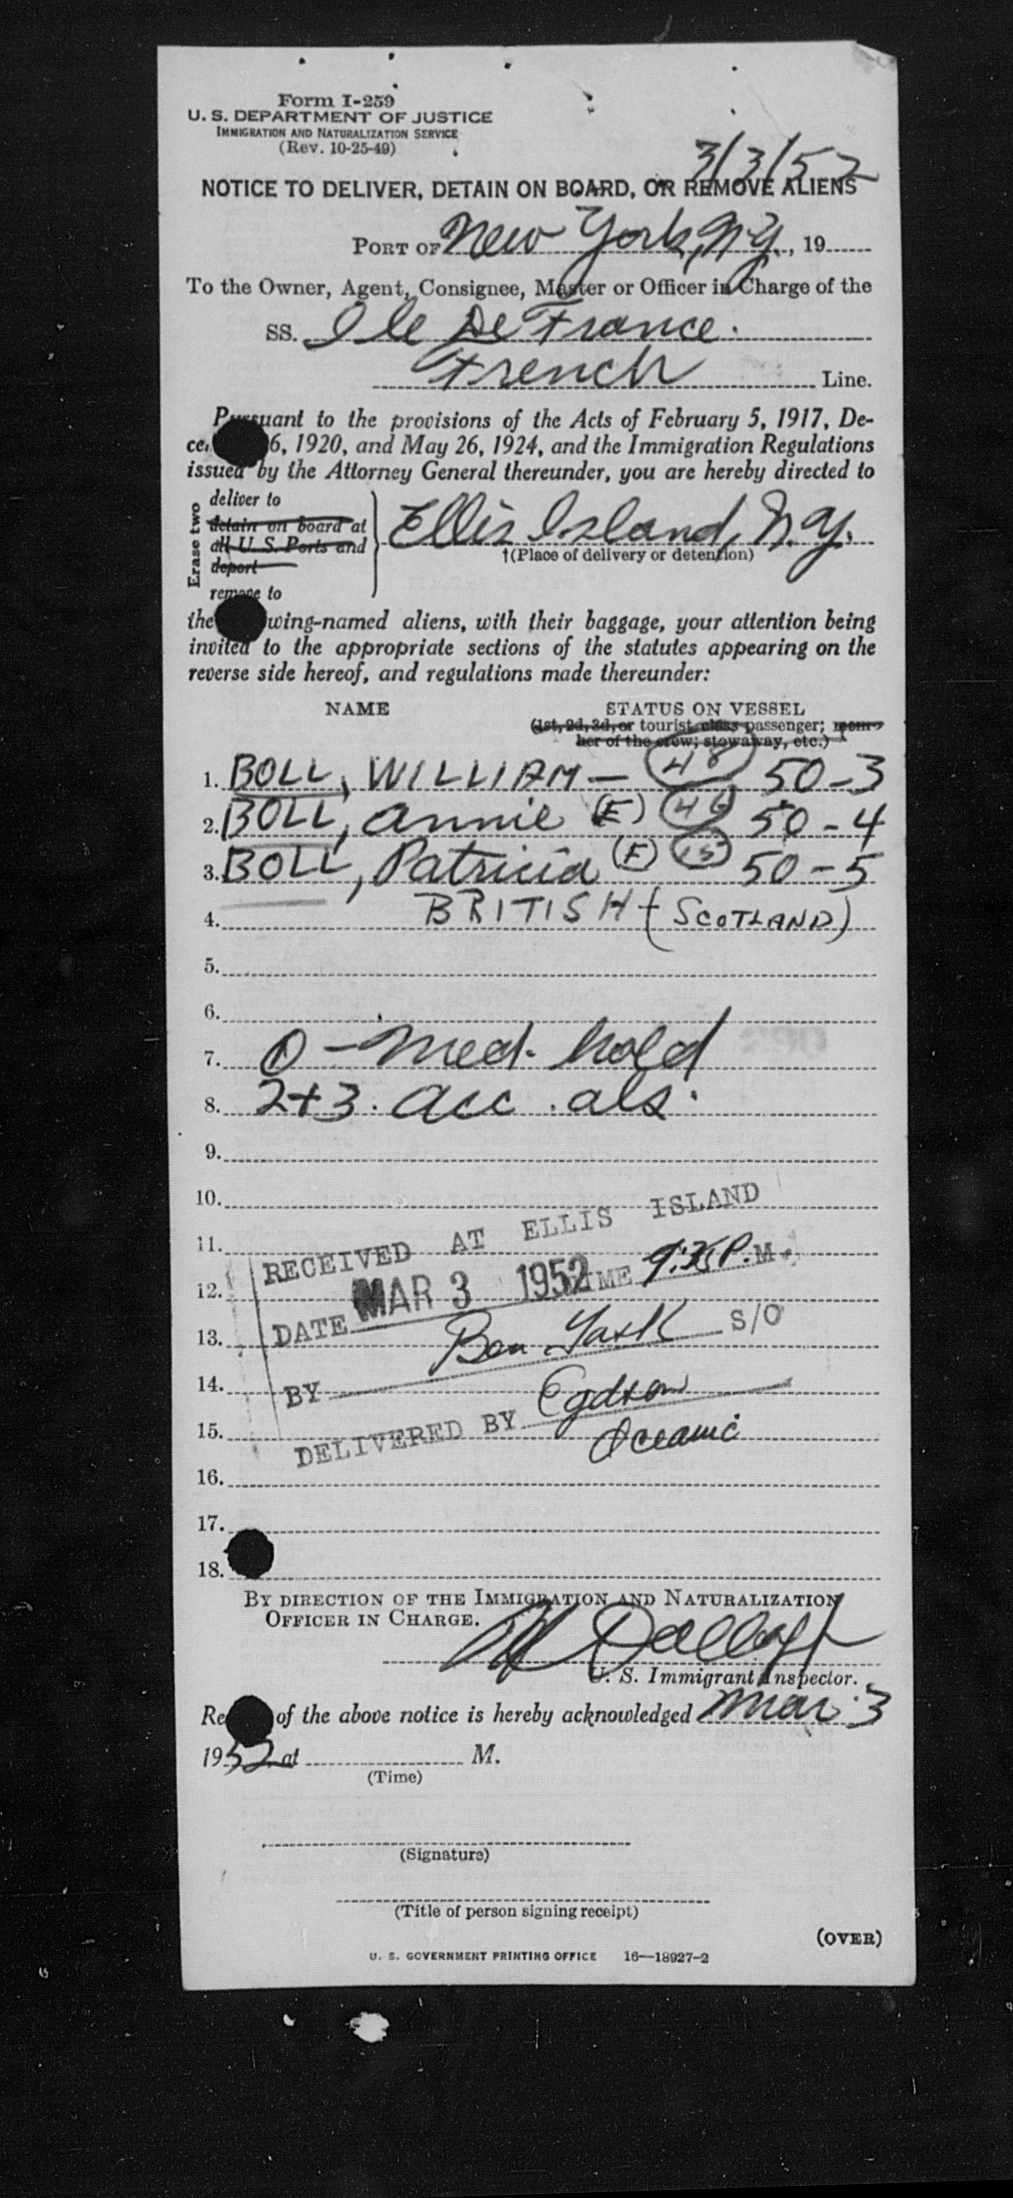 Form I-259
U. S. DEPARTMENT OF JUSTICE
IMMIGRATION AND NATURALIZATION SERVICE
(Rev. 10-25-49)
3/3/52
NOTICE TO DELIVER, DETAIN ON BOARD, OR REMOVE ALIENS
PORT OF New York, N.Y., 19
To the Owner, Agent, Consignee, Master or Officer in Charge of the
SS. Ile De France.
French Line.
Pursuant to the provisions of the Acts of February 5, 1917, De-
ce 6, 1920, and May 26, 1924, and the Immigration Regulations
issued by the Attorney General thereunder, you are hereby directed to
Erase two
deliver to
detain on board at
all U. S. Ports and
deport
remove to
Ellis Island, N.Y.
†(Place of delivery or detention)
the wing-named aliens, with their baggage, your attention being
invited to the appropriate sections of the statutes appearing on the
reverse side hereof, and regulations made thereunder:
NAME STATUS ON VESSEL
(1st, 2d, 3d, or tourist class passenger; mem-
ber of the crew; stowaway, etc.)
1. BOLL, WILLIAM — 48 50-3
2. BOLL, Annie (F) 46 50-4
3. BOLL, Patricia (F) 15 50-5
4. BRITISH (SCOTLAND)
5.
6.
7. 1 - Med. hold
8. 2+3. acc. als.
9.
10.
11.
12.
13.
14.
15.
16.
17.
18.
RECEIVED AT ELLIS ISLAND
DATE MAR 3 1952 TIME P.M.
BY Ben S/O
DELIVERED BY
Oceanic
BY DIRECTION OF THE IMMIGRATION AND NATURALIZATION
OFFICER IN CHARGE.
U. S. Immigrant Inspector.
Re of the above notice is hereby acknowledged Mar 3
1952 at M.
(Time)
(Signature)
(Title of person signing receipt)
(OVER)
U. S. GOVERNMENT PRINTING OFFICE 16—18927-2